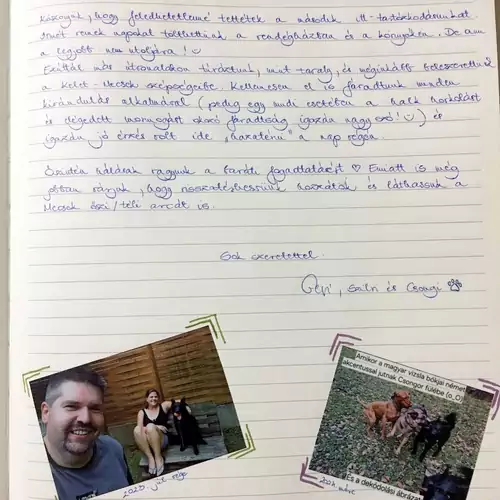 Köszönjük, hogy feledhetetlenné tettétek a második itt-tartózkodásunkat.
Ismét remek napokat töltöttünk a vendégházban és a környéken. De nem
a legjobb nem utoljára! ☺
Ezúttal más útvonalakon túráztunk, mint tavaly, és méginkább beleszerettünk
a Kelet-Mecsek szépségeibe. Kellemesen el is fáradtunk minden
kirándulás alkalmával (pedig egy mudi esetében a halk horkolást
és elégedett morgást okozó fáradtság igazán nagy szó! ☺) és
igazán jó érzés volt ide "hazatérni" a nap végén.
Szintén hálásak vagyunk a baráti fogadtatásért ♡ Emiatt is még
jobban várjuk, hogy visszatérhessünk hozzátok és láthassuk a
Mecsek őszi/téli arcát is.
Sok szeretettel.
és Csongi
Amikor a magyar vizsla bókjai német
akcentussal jutnak Csongor fülébe (o_O)
És a dekódolási ábrázat
2025. júl. vége